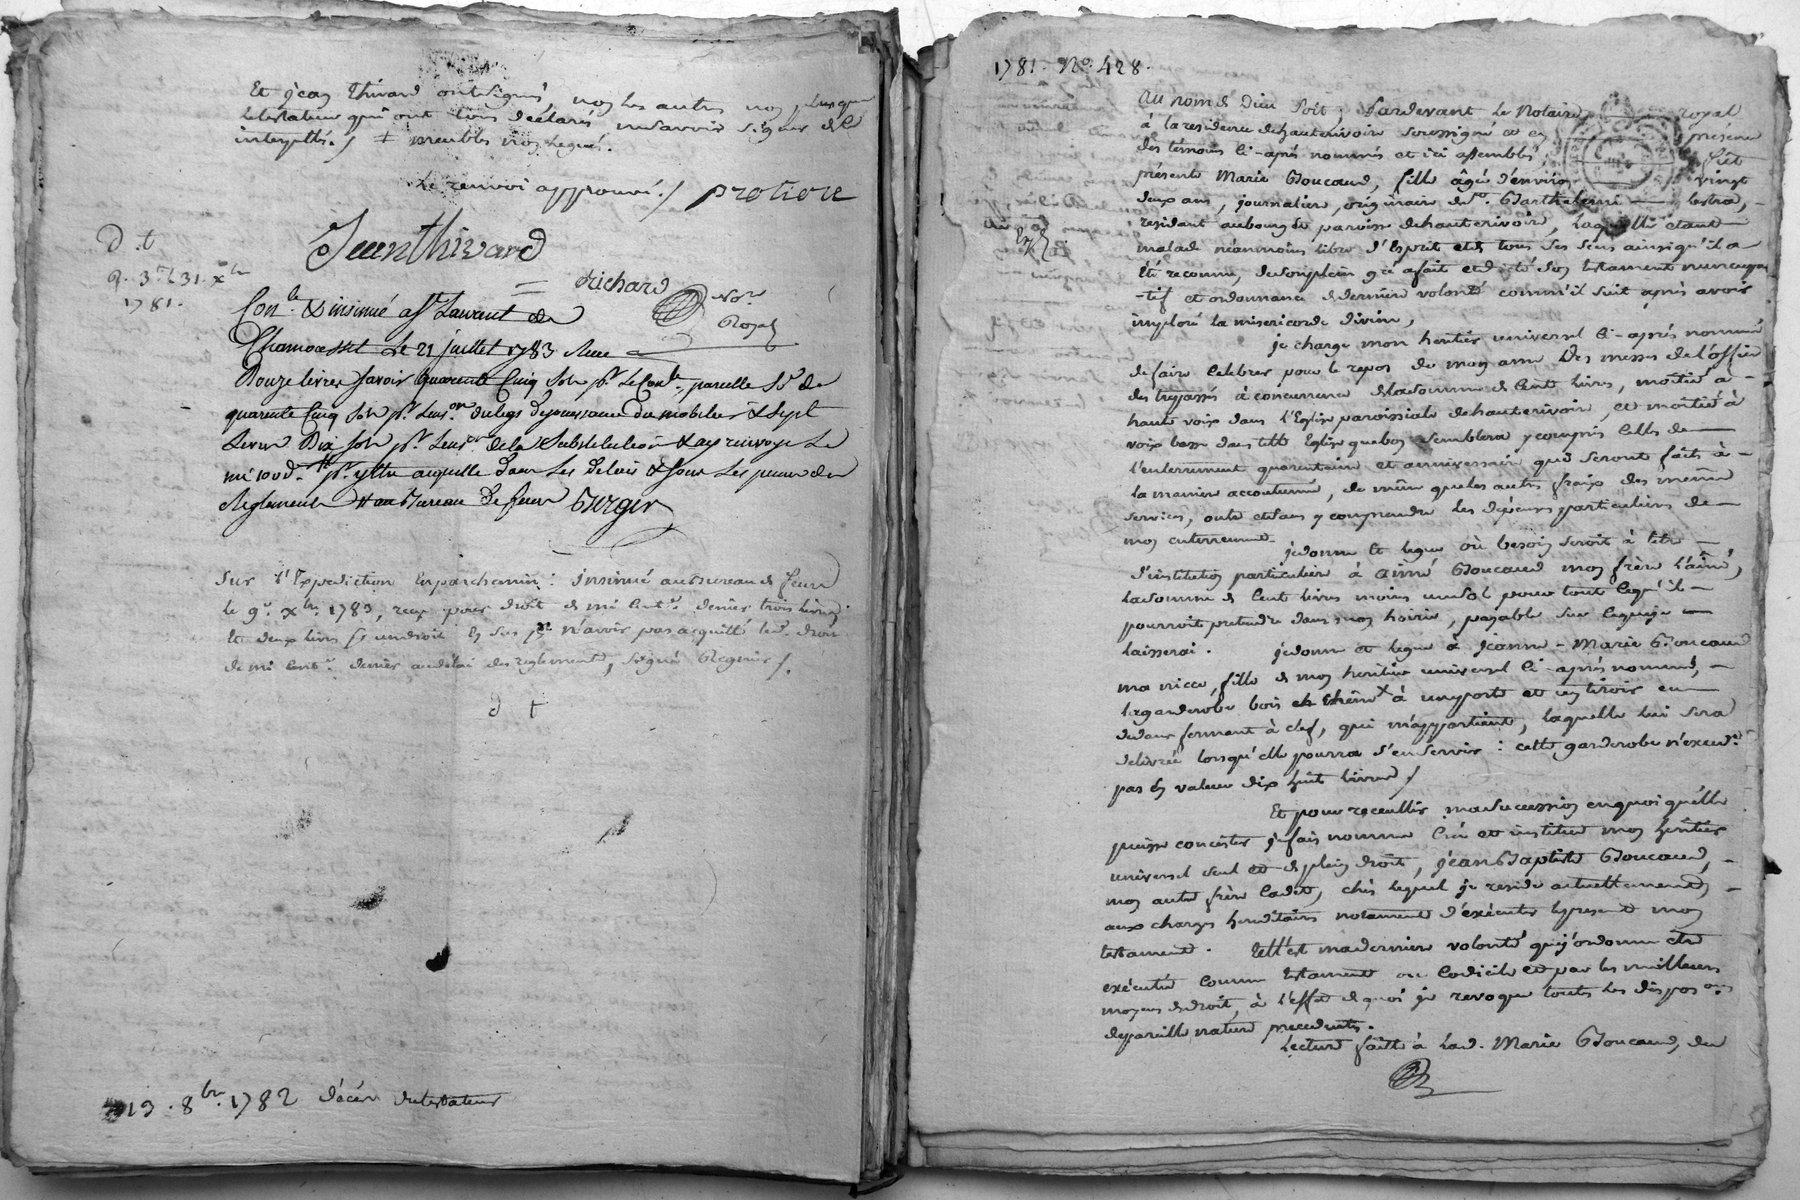 Et jean Thivard ont signés, non les autres non plus que
le testateur qui ont tous declarés ne savoir signer de ce
interpellés ./ ‡ meubles non legués.
Le renvoi approuvé ./ protiere
Jean thivard
richard
No.re
Royal
D. t
g. 3.e t. 31. x.bre
1781.
Con.lé & insinué a S.t Laurent de
Chamousset Le 21 juillet 1783 Reçu
Douze livres savoir quarente Cinq sols p.r Le Con.le, pareille S.e de
quarente Cinq sols p.r du legs de jouissance du mobilier & Sept
Livres Dix sols p.r de la Substitution & ay renvoyé Le
mi 100.d p.r y être acquitté dans Les Délais & sous Les peines des
Reglements au Bureau De feurs Burgin
Sur l'Expedition en parchemin : insinué au bureau de feurs
le 9.e x.bre 1783, reçu pour droit de mi Cent.e denier trois livres
Et deux livres pour un droit En sus p.r n'avoir pas acquitté led. droit
de mi Cent.e denier au delai des reglements, Signé Regnier /.
d t
13. 8.bre 1782 décés du testateur
1781. No. 428.
Au nom de Dieu soit ; Pardevant Le Notaire royal
à la residence de hauterivoire soussigné et en présence
des témoins Ci-après nommés et ici assemblés, fut
présente Marie Boucaud, fille âgée d'environ vingt
deux ans, journaliere, originaire de S.t Barthelemi lestra,
residant au bourg de paroisse de hauterivoire, laquelle étant
malade néanmoins libre d'Esprit et de tous ses sens ainsi qu'il a
Eté reconnu, de son plein gré a fait et dicté son testament nuncupa
-tif et ordonnance de derniere volonté comm'il suit après avoir
imploré la misericorde divine,
je charge mon heritier universel Ci-après nommé
de faire Celebrer pour le repos de mon ame Des messes de l'office
des trépassés à concurrence de la somme de Cent livres, moitié a
haute voix dans l'Eglise paroissiale de hauterivoire, et moitié à
voix basse dans telle Eglise que bon semblera y compris Celles de
l'enterrement quarentaine et anniversaire qui seront faits à
la maniere accoutumée, de même que les autres fraix des mêmes
services, outre et sans y comprendre les dépens particuliers de
mon enterrement.
je donne et legue où besoin seroit à titre
d'institution particuliere à aimé Boucaud mon frère L'ainé,
la somme de Cent livres moins un sol pour tout ce qu'il
pourroit pretendre dans mon hoirie, payable sur ce que je
laisserai. je donne et legue à jeanne-Marie Boucaud
ma niece, fille de mon heritier universel Ci-après nommé,
la garderobe bois de chêne à une porte et un tiroir en
dedans fermant à clef, qui m'appartient, laquelle lui sera
delivrée lorsqu'elle pourra s'en servir : cette garderobe n'exced.t
pas En valeur dix huit livres /
Et pour recueillir ma succession en quoi qu'elle
puisse concister je fais nomme Crée et institue mon heritier
universel seul et de plein droit, jean Baptiste Boucaud,
mon autre frère Cadet, chés lequel je reside actuellement,
aux charges hereditaires notament d'exécuter le present mon
testament. telle est ma derniere volonté que j'ordonne etre
exécutée comme testament ou Codicile et par les meilleurs
moyens de droit, à l'effet de quoi je revoque toutes les dispos.ons
de pareille nature precedentes.
Lecture faite à lad. Marie Boucaud, du